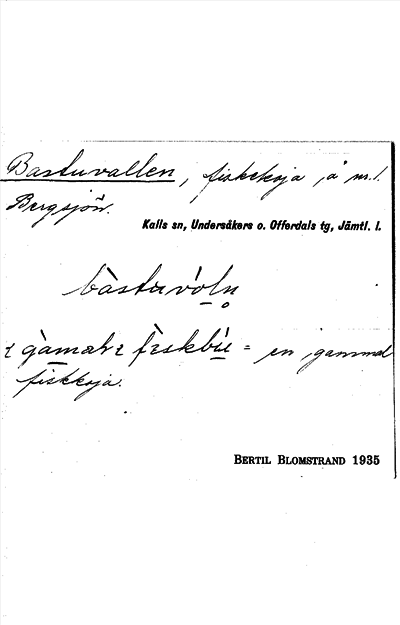 Bastuvallen, fiskekoja å nr. 1.
Bergsjön.
Kalls sn, Undersåkers o. Offerdals tg, Jämtl. l.
bàstuvóln̥
fiskbu = en gammal
fiskkoja.
BERTIL BLOMSTRAND 1935